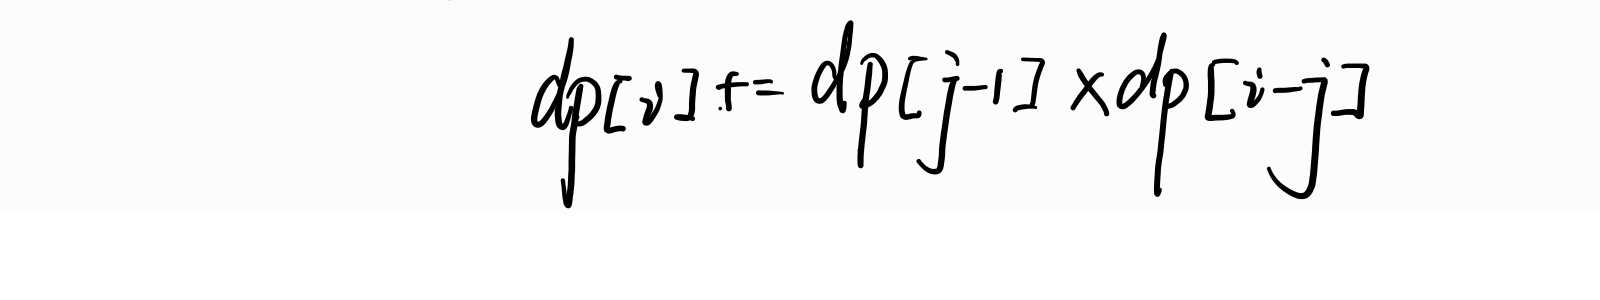 dp[i] += dp[j-1] × dp[i-j]